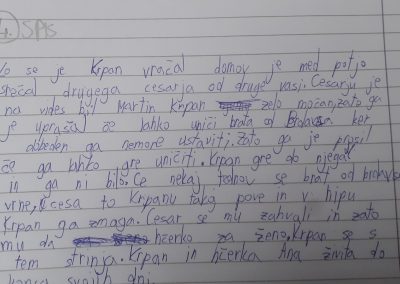 4. SPIS
Ko se je Krpan vračal domov je med potjo
srečal drugega cesarja od druge vasi. Cesarju je
na videz bil Martin Krpan zelo močan, zato ga
je uprašal če lahko uniči brata od Brdavsa ker
dobeden ga nemore ustaviti, zato ga je prosil
če ga lahko gre uničiti. Krpan gre do njega
in ga ni bilo. Če nekaj tednov se brat od brdavsa
vrne, cesa to Krpanu takoj pove in v hipu
Krpan ga zmaga. Cesar se mu zahvali in zato
mu da hčerko za ženo, Krpan se s
tem strinja. Krpan in hčerka Ana živita do
konca svojih dni.